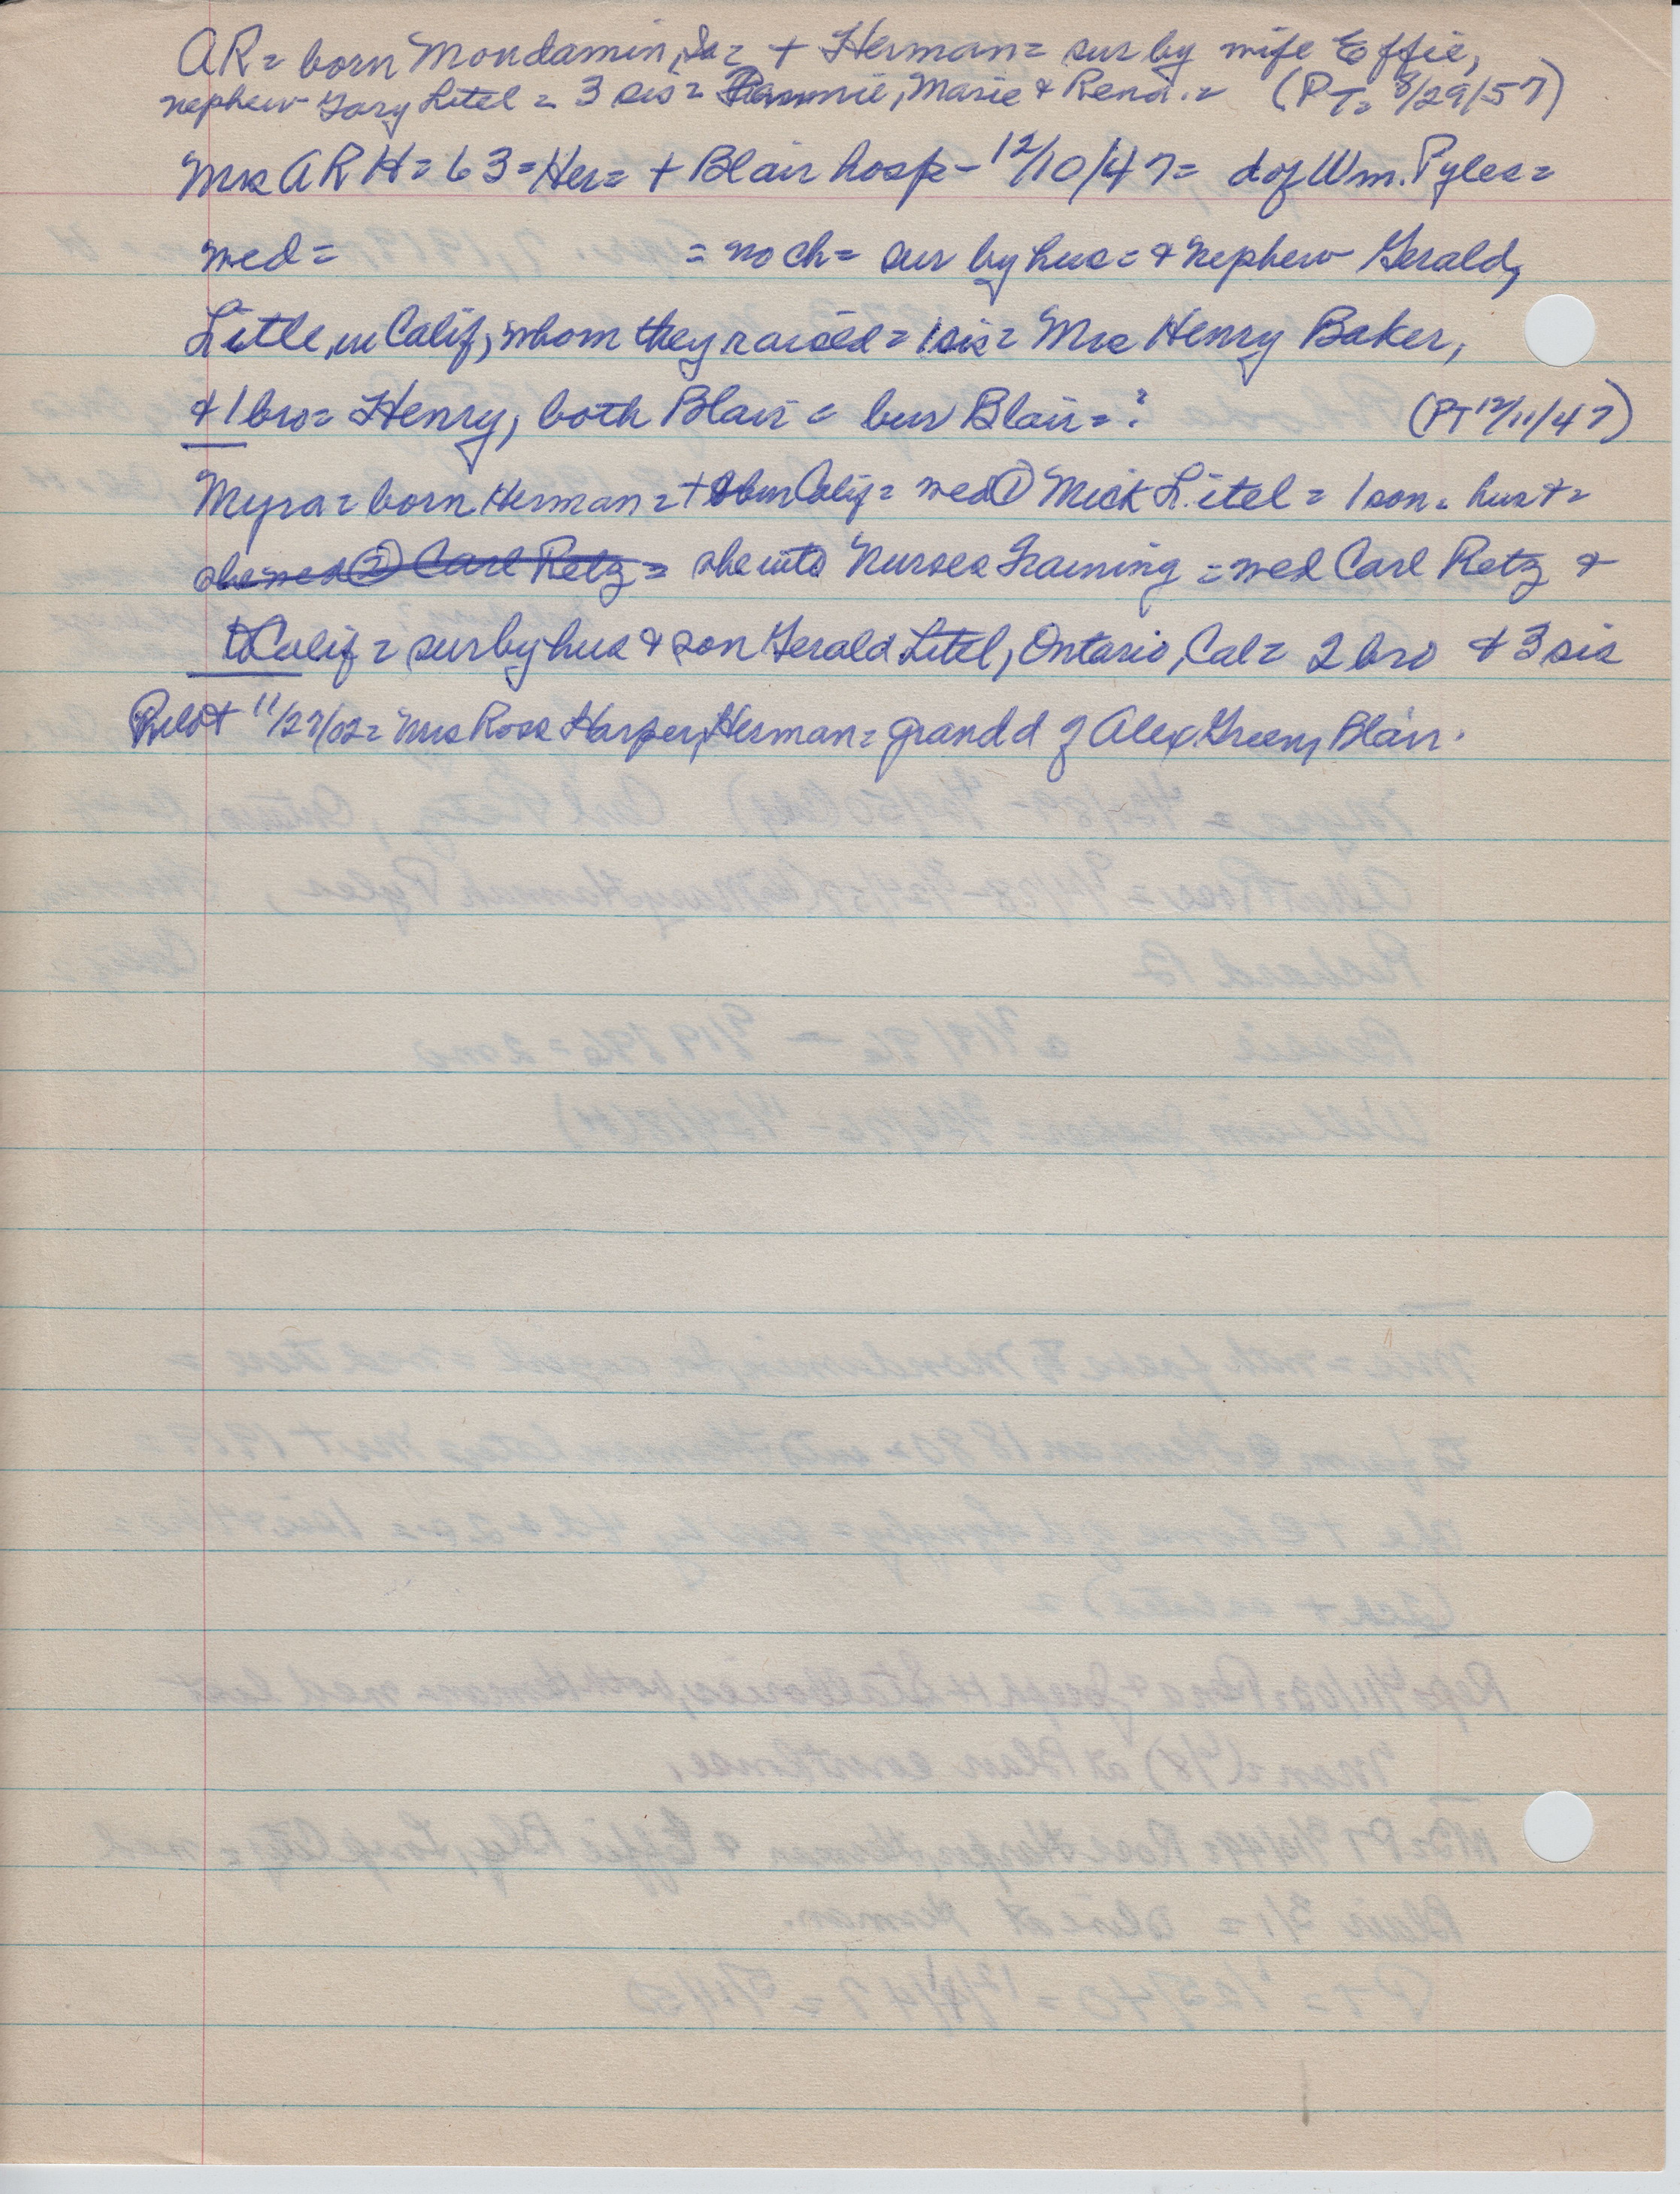 AR = born Mondamin, Ia = + Herman = sur by wife Effie,
nephew Gary Litel = 3 sis = Marie & Rena. = (PT = 8/29/57)
Mrs ARH = 63 = Her = + Blair hosp - 12/10/47 = d of Wm. Pyles =
med = = no ch = sur by hus = & nephew Gerald,
Litle, in Calif, whom they raised = 1 sis = Mrs Henry Baker,
& 1 bro = Henry, both Blair = bur Blair = ? (PT 12/11/47)
Myra = born Herman = + bur Calif = med ① Mick Litel = 1 son = hus + =
she med ② Carl Retz = she into Nurses Training = med Carl Retz &
to Calif = sur by hus & son Gerald Litel, Ontario, Cal = 2 bro & 3 sis
Pilot 11/27/02 = Mrs Ross Harper, Herman = grand d of Alex Green, Blair.